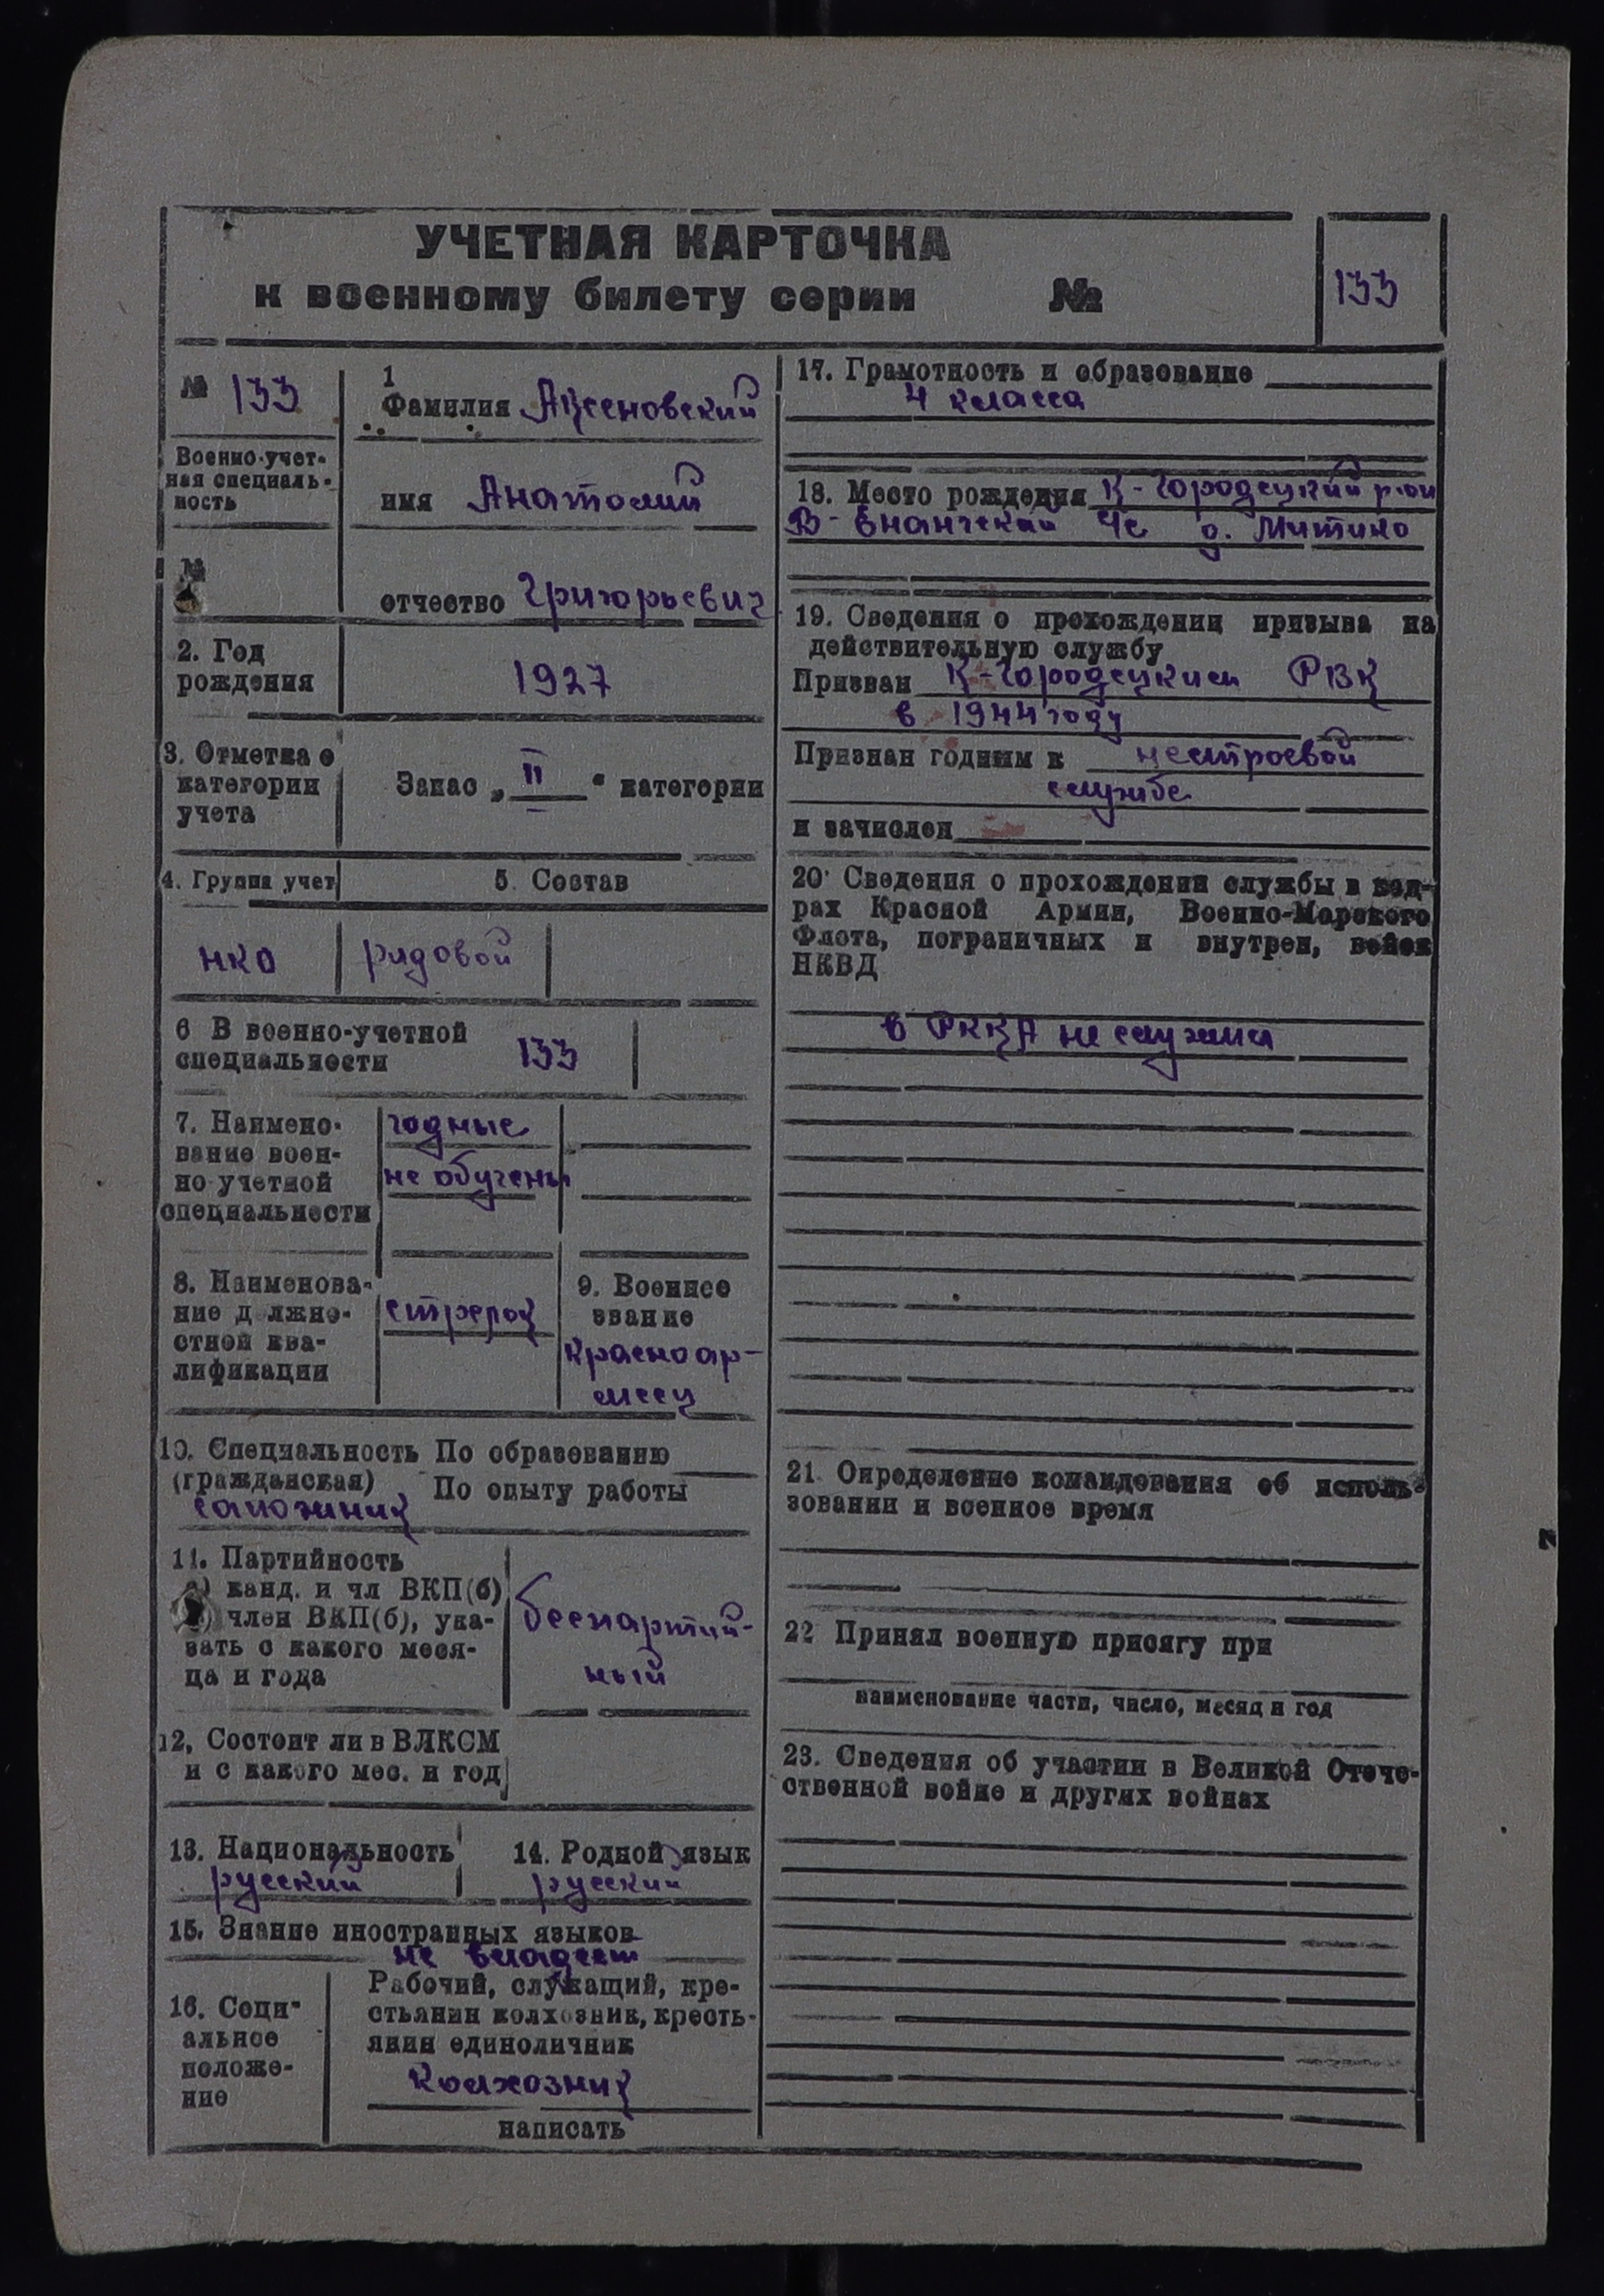 УЧЕТНАЯ КАРТОЧКА
к военному билету серии №
133
№ 133
Военно-учет-
ная специаль-
ность
№
1
Фамилия Аксеновский
имя Анатолий
отчество Григорьевич
2. Год
рождения
1927
3. Отметка о
категории
учета
Запас „II“ категории
4. Группа учет
5. Состав
НКО
рядовой
6 В военно-учетной
специальности
133
7. Наимено-
вание воен-
но-учетной
специальности
годные
не обучены
8. Наименова-
ние должно-
стной ква-
лификации
стрелок
9. Военное
звание
красноар-
меец
10. Специальность По образованию
(гражданская) По опыту работы
сапожник
11. Партийность
а) канд. и чл ВКП(б)
б) член ВКП(б), ука-
зать с какого меся-
ца и года
беспартий-
ный
12, Состоит ли в ВЛКСМ
и с какого мес. и год
13. Национальность
русский
14. Родной язык
русский
15. Знание иностранных языков
не владеет
16. Соци-
альное
положе-
ние
Рабочий, служащий, кре-
стьянин колхозник, кресть-
янин единоличник
Колхозник
написать
17. Грамотность и образование
4 класса
18. Место рождения К-Городецкий р-он
В- с д. Митино
19. Сведения о прохождении призыва на
действительную службу
Призван К-Городецким РВК
в 1944 году
Признан годным к нестроевой
службе
и зачислен
20. Сведения о прохождении службы в кад-
рах Красной Армии, Военно-Морского
Флота, пограничных и внутрен, войск
НКВД
в РККА не служил
21. Определение командования об исполь-
зовании и военное время
22 Принял военную присягу при
наименование части, число, месяц и год
23. Сведения об участии в Великой Отече-
ственной войне и других войнах